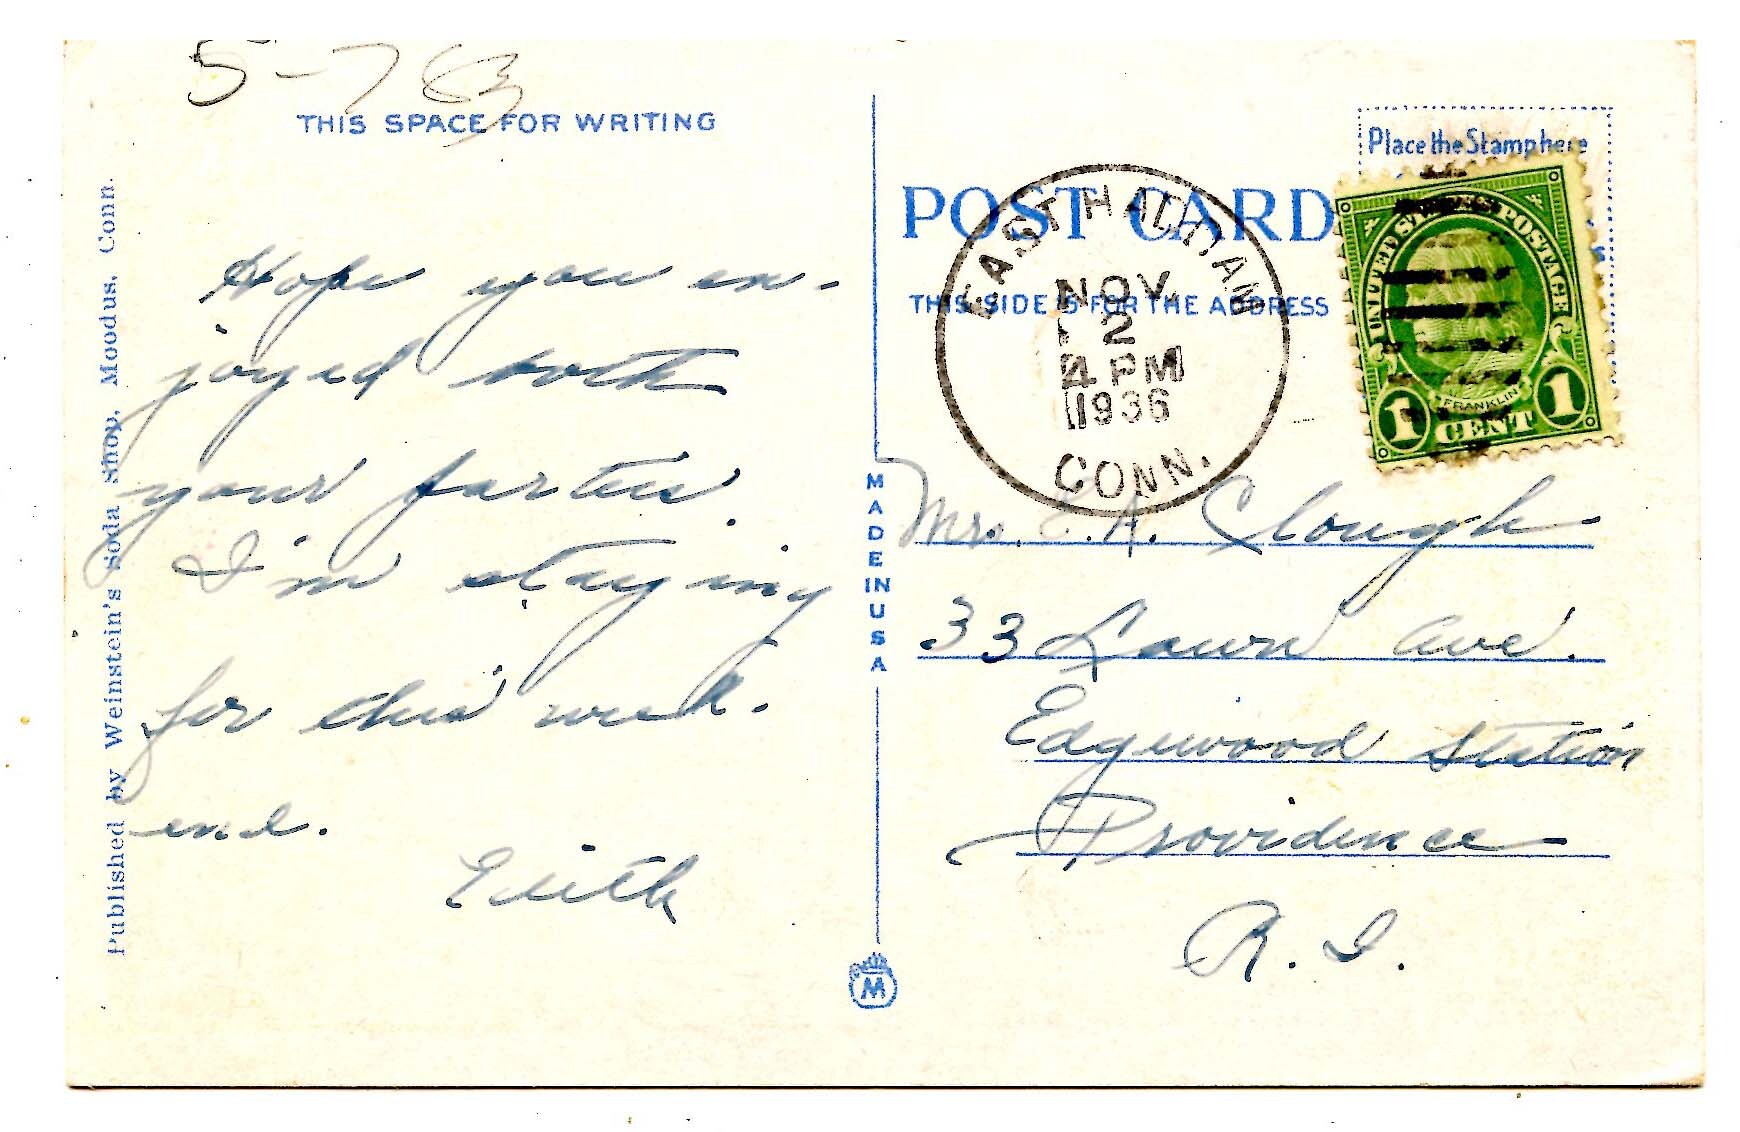 5-783
THIS SPACE FOR WRITING
Hope you en-
joyed both
your parties.
I'm staying
for this week.
end.
Edith
Published by Weinstein's Soda Shop, Moodus, Conn.
MADE IN USA
M
POST CARD
THIS SIDE IS FOR THE ADDRESS
Place the Stamp here
EAST HADDAM
NOV
2
4 PM
1936
CONN.
UNITED STATES POSTAGE
FRANKLIN
1 CENT 1
Mrs. E. A. Clough
33 Lawn Ave.
Edgewood Station
Providence
R. I.